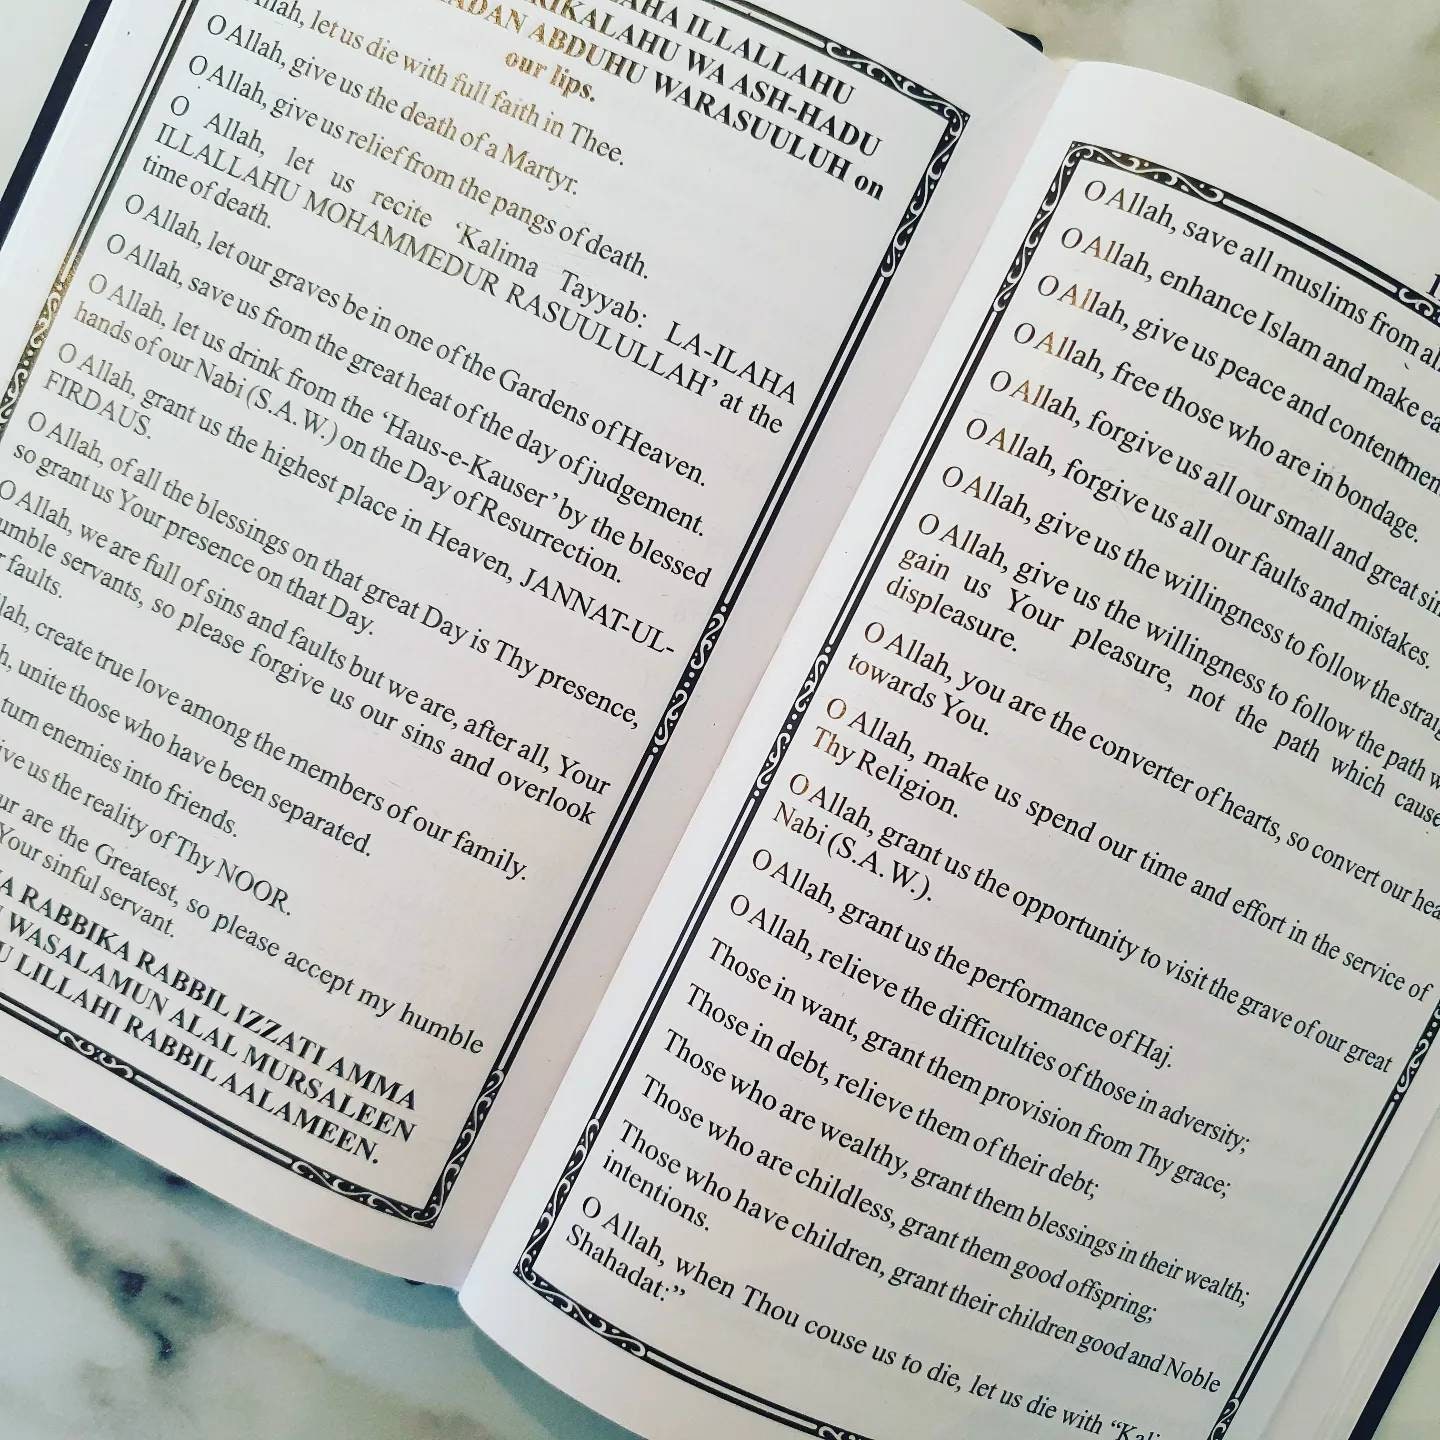 ILLALLAHU
WA ASH-HADU
ABDUHU WARASUULUH on
our lips.
let us die with full faith in Thee.
O Allah, give us the death of a Martyr.
O Allah, give us relief from the pangs of death.
O Allah, let us recite ‘Kalima Tayyab: LA-ILAHA
ILLALLAHU MOHAMMEDUR RASUULULLAH’ at the
time of death.
O Allah, let our graves be in one of the Gardens of Heaven.
O Allah, save us from the great heat of the day of judgement.
O Allah, let us drink from the ‘Haus-e-Kauser’ by the blessed
hands of our Nabi (S.A.W.) on the Day of Resurrection.
O Allah, grant us the highest place in Heaven, JANNAT-UL-
FIRDAUS.
O Allah, of all the blessings on that great Day is Thy presence,
so grant us Your presence on that Day.
O Allah, we are full of sins and faults but we are, after all, Your
servants, so please forgive us our sins and overlook
faults.
create true love among the members of our family.
unite those who have been separated.
turn enemies into friends.
us the reality of Thy NOOR.
are the Greatest, so please accept my humble
Your sinful servant.
RABBIKA RABBIL IZZATI AMMA
WASALAMUN ALAL MURSALEEN
LILLAHI RABBIL AALAMEEN.
O Allah, save all muslims from
O Allah, enhance Islam and make
O Allah, give us peace and
O Allah, free those who are in bondage.
O Allah, forgive us all our small and great
O Allah, forgive us all our faults and mistakes.
O Allah, give us the willingness to follow the
O Allah, give us the willingness to follow the path
gain us Your pleasure, not the path which cause
displeasure.
O Allah, you are the converter of hearts, so convert our
towards You.
O Allah, make us spend our time and effort in the service of
Thy Religion.
O Allah, grant us the opportunity to visit the grave of our great
Nabi (S.A.W.).
O Allah, grant us the performance of Haj.
O Allah, relieve the difficulties of those in adversity;
Those in want, grant them provision from Thy grace;
Those in debt, relieve them of their debt;
Those who are wealthy, grant them blessings in their wealth;
Those who are childless, grant them good offspring;
Those who have children, grant their children good and Noble
intentions.
O Allah, when Thou couse us to die, let us die with
Shahadat:”